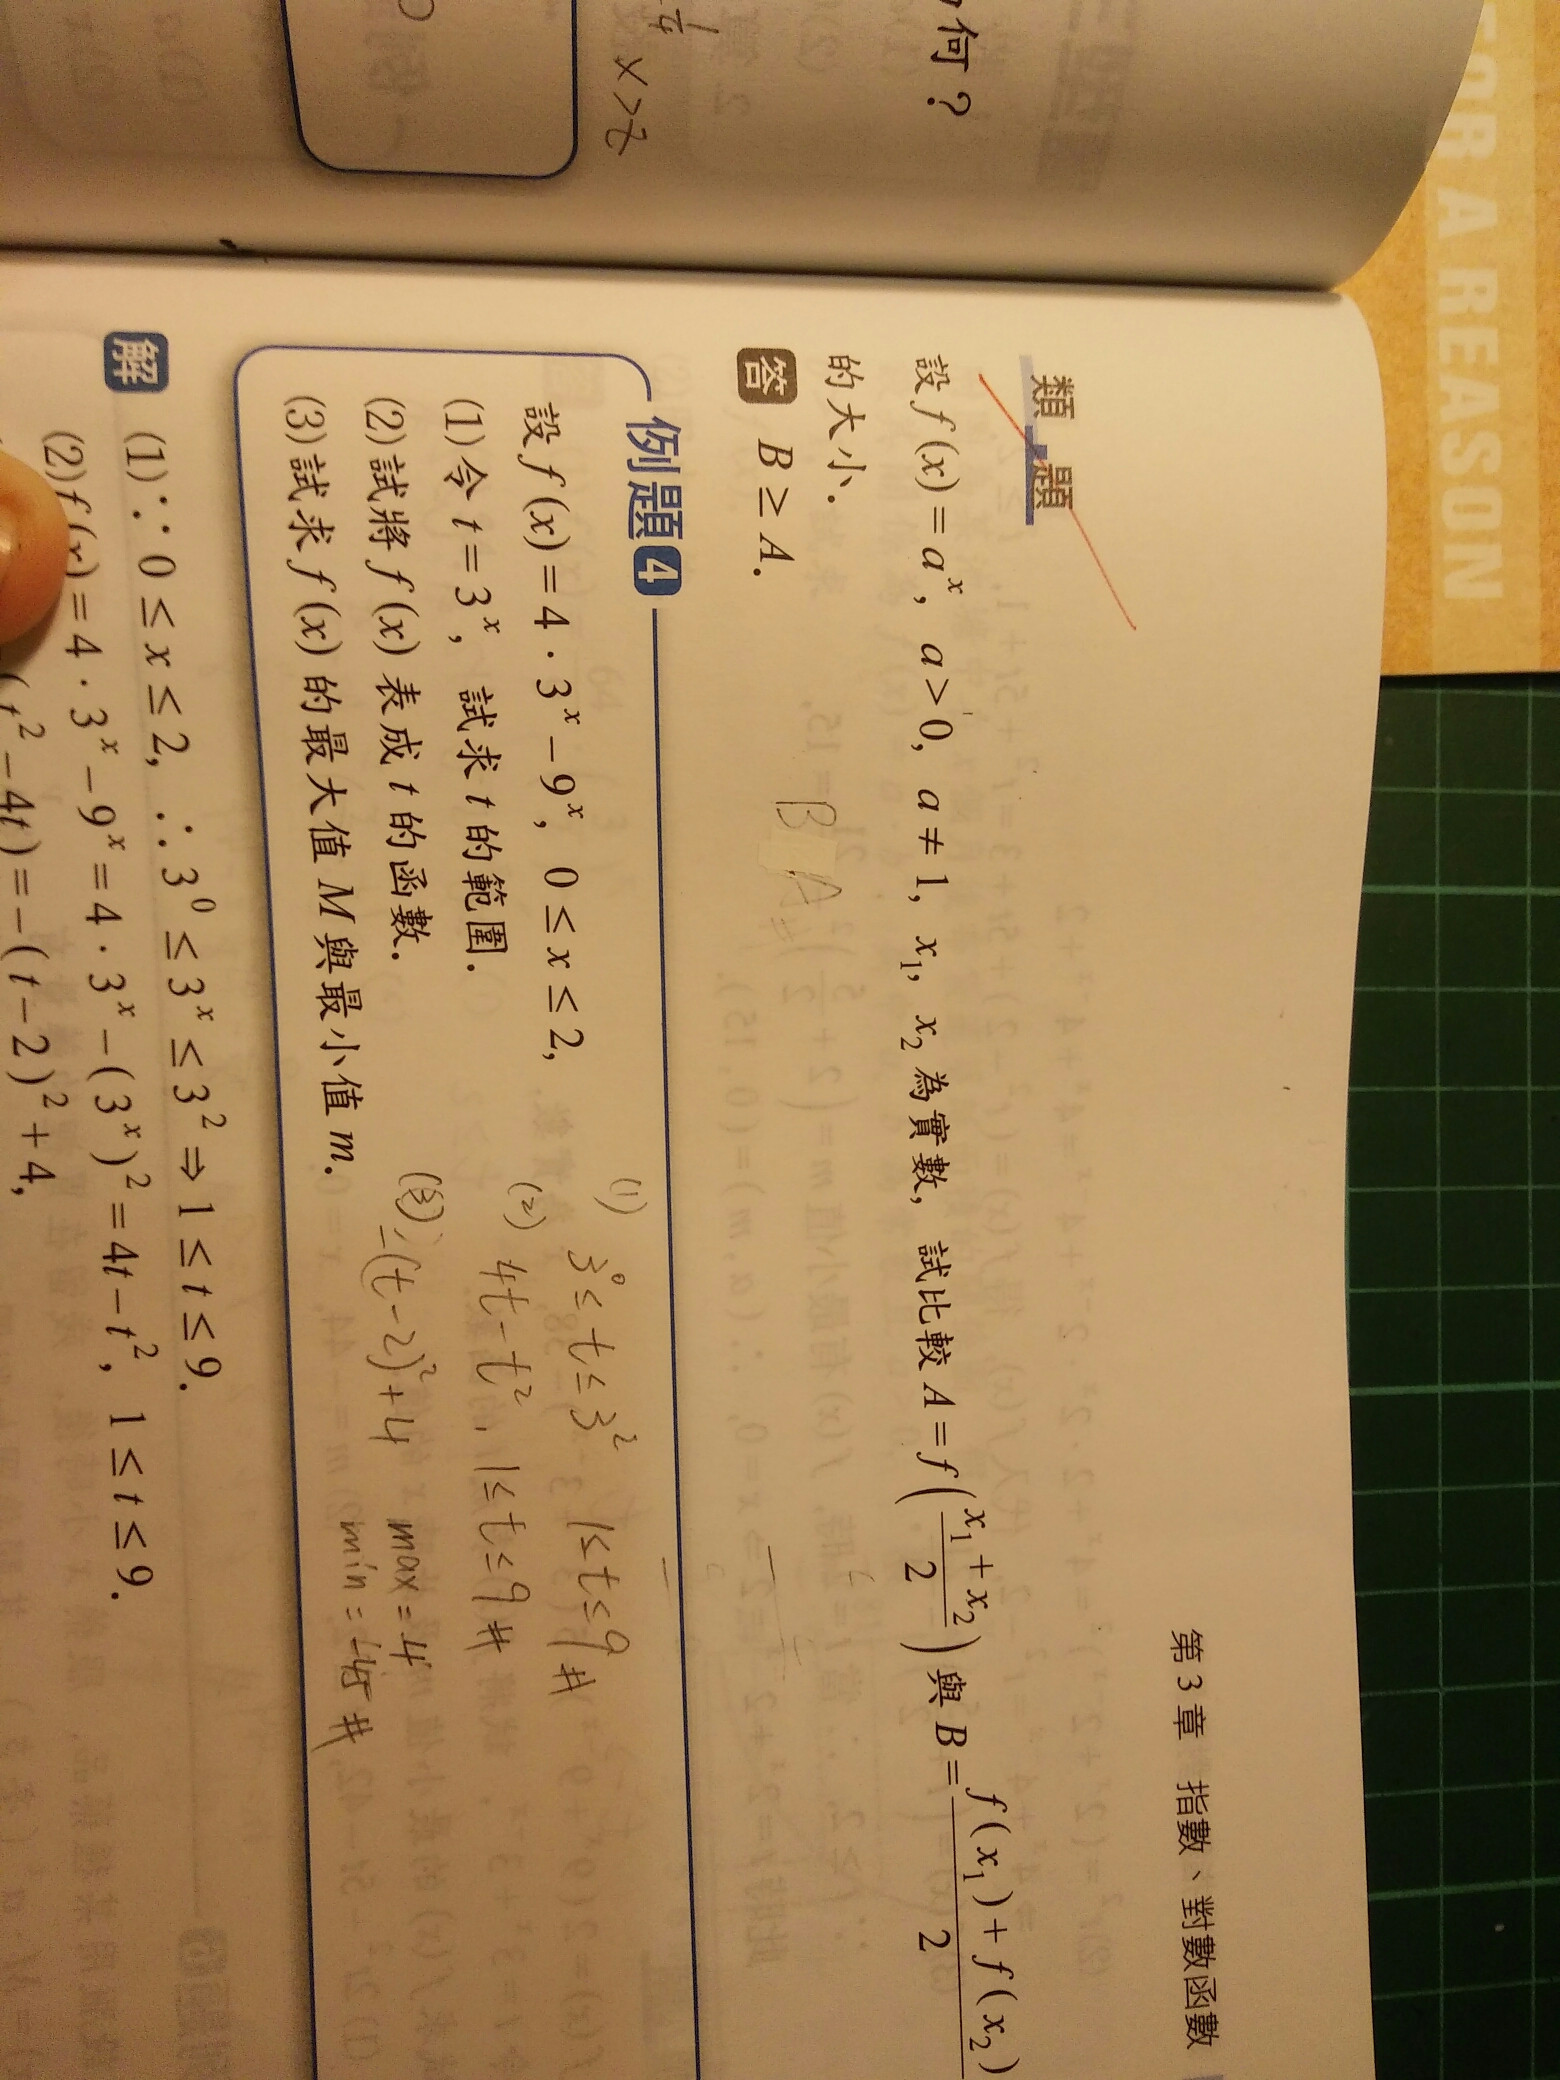 FOR A REASON
何？
x > z
第3章 指數、對數函數
類題
設 f(x) = aˣ, a > 0, a ≠ 1, x₁, x₂ 為實數, 試比較 A = f((x₁ + x₂)/2) 與 B = (f(x₁) + f(x₂))/2
的大小.
答 B ≥ A.
B A #
例題 4
設 f(x) = 4 · 3ˣ − 9ˣ, 0 ≤ x ≤ 2,
(1) 令 t = 3ˣ, 試求 t 的範圍.
(2) 試將 f(x) 表成 t 的函數.
(3) 試求 f(x) 的最大值 M 與最小值 m.
(1) 3⁰ ≤ t ≤ 3² 1 ≤ t ≤ 9 #
(2) 4t − t², 1 ≤ t ≤ 9 #
(3) −(t − 2)² + 4 max = 4
min = −45 #
解 (1) ∵ 0 ≤ x ≤ 2, ∴ 3⁰ ≤ 3ˣ ≤ 3² ⇒ 1 ≤ t ≤ 9.
(2) f(x) = 4 · 3ˣ − 9ˣ = 4 · 3ˣ − (3ˣ)² = 4t − t², 1 ≤ t ≤ 9.
(t² − 4t) = −(t − 2)² + 4,